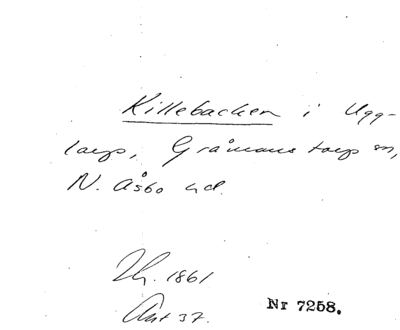 Killebacken i Ugg-
larp, Gråmanstorps sn,
N. Åsbo hd.
Th. 1861
Ant 37.
Nr 7258.